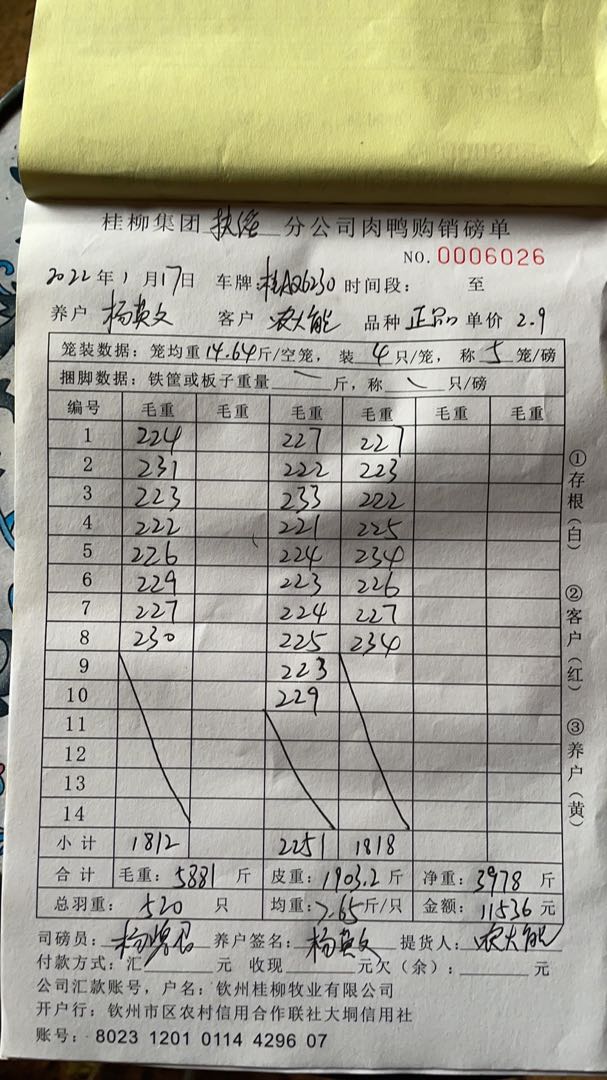 桂柳集团 扶绥 分公司肉鸭购销磅单
NO. 0006026
2022年1月17日 车牌:桂AQ6230 时间段: 至
养户 杨英文 客户 农大能 品种 正品 单价 2.9
笼装数据:笼均重14.64斤/空笼,装 4 只/笼,称 5 笼/磅
捆脚数据:铁筐或板子重量 斤,称 只/磅
编号 毛重 毛重 毛重 毛重 毛重 毛重
1 224 227 227
2 231 222 223
3 223 233 222
4 222 221 225
5 226 224 234
6 229 223 226
7 227 224 227
8 230 225 234
9 223
10 229
11
12
13
14
小计 1812 2251 1818
合计 毛重:5881 斤 皮重:1903.2 斤 净重:3978 斤
总羽重: 520 只 均重:7.65斤/只 金额:11536 元
司磅员:杨 养户签名:杨英文 提货人:农大能
付款方式:汇 元 收现 元欠(余): 元
公司汇款账号,户名:钦州桂柳牧业有限公司
开户行:钦州市区农村信用合作联社大垌信用社
账号:8023 1201 0114 4296 07
①存根(白)
②客户(红)
③养户(黄)